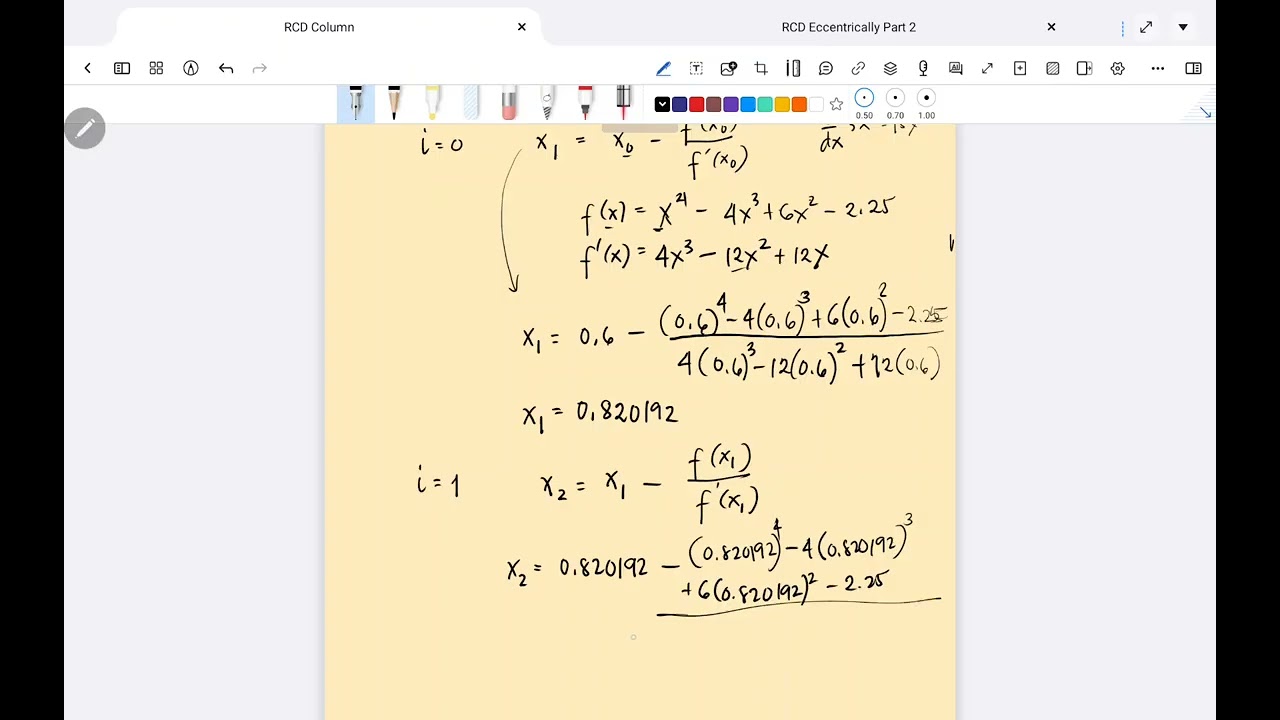 RCD Column
RCD Eccentrically Part 2
0.50 0.70 1.00
i=0 x₁ = x₀ - f(x₀)/f'(x₀)
dx
f(x) = x⁴ - 4x³ + 6x² - 2.25
f'(x) = 4x³ - 12x² + 12x
x₁ = 0.6 - (0.6)⁴ - 4(0.6)³ + 6(0.6)² - 2.25
4(0.6)³ - 12(0.6)² + 12(0.6)
x₁ = 0.820192
i = 1 x₂ = x₁ - f(x₁)/f'(x₁)
x₂ = 0.820192 - (0.820192)⁴ - 4(0.820192)³
+ 6(0.820192)² - 2.25